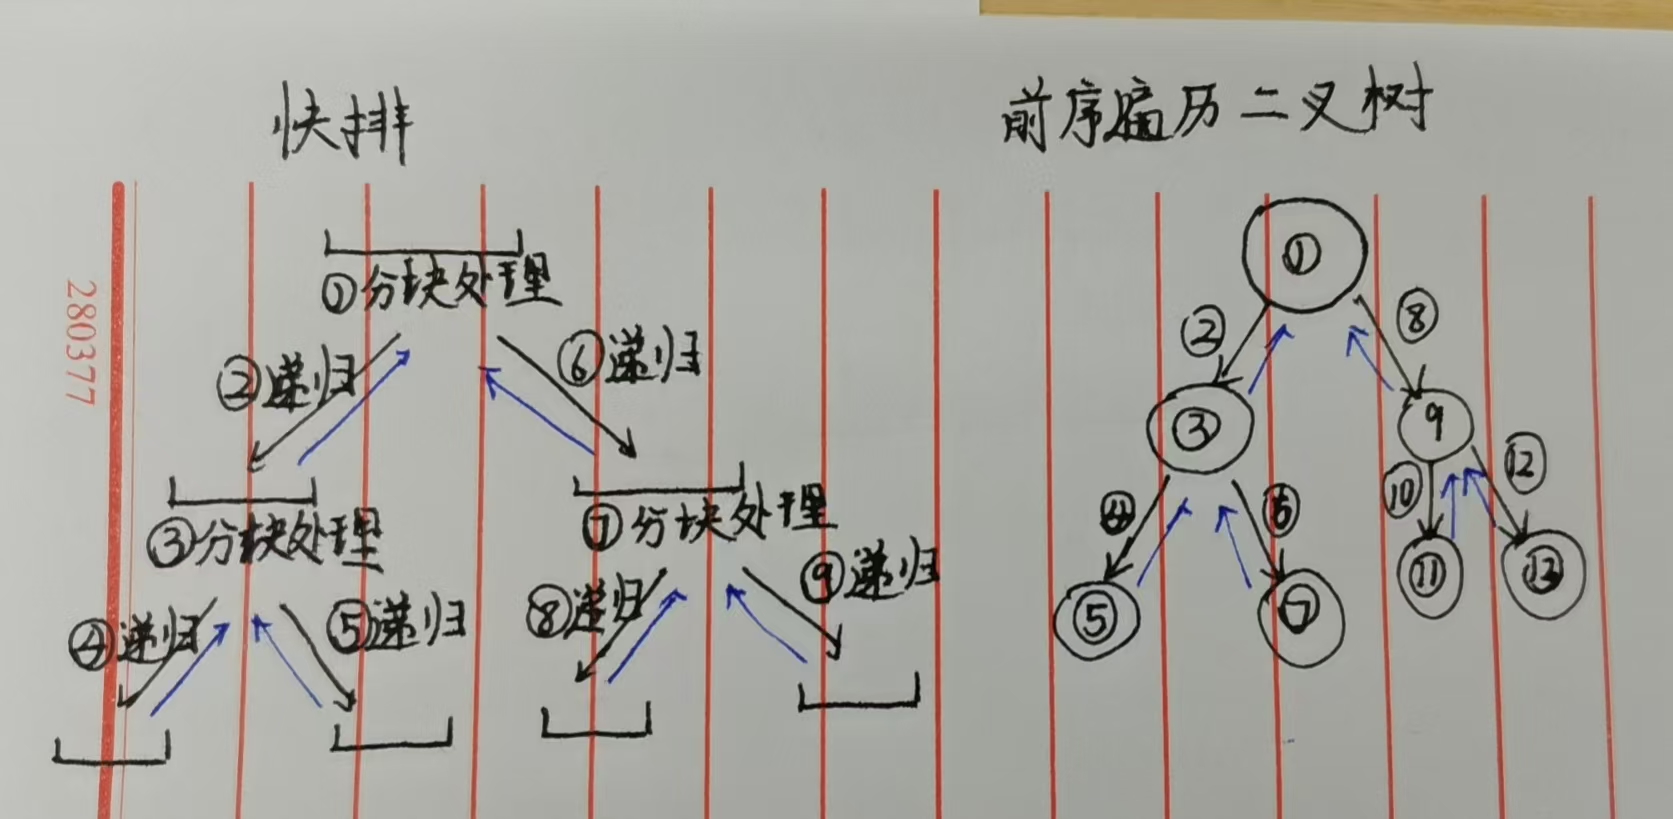 快排
前序遍历二叉树
280377
①分块处理
②递归
⑥递归
③分块处理
⑦分块处理
④递归
⑤递归
⑧递归
⑨递归
①
②
⑧
③
9
④
⑥
⑩
⑫
⑤
⑦
⑪
⑬